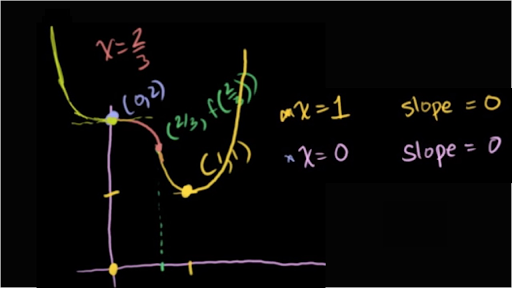 x = 2/3
(0,2)
(2/3, f(2/3))
(1,1)
x = 1 slope = 0
x = 0 slope = 0